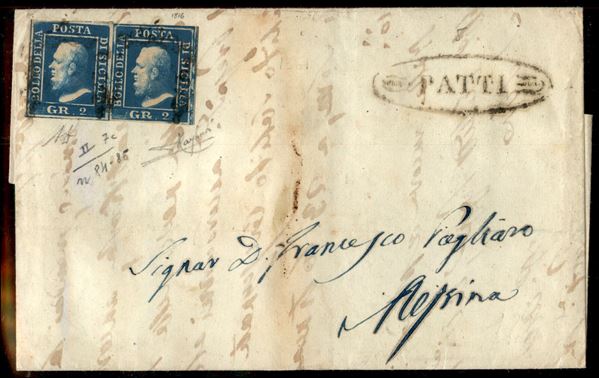 1816
POSTA
BOLLO DELLA
DI SICILIA
GR. 2
POSTA
BOLLO DELLA
DI SICILIA
GR. 2
PATTI
II 7c
n 84-85
Signar D. Francesco Pagliaro
Messina